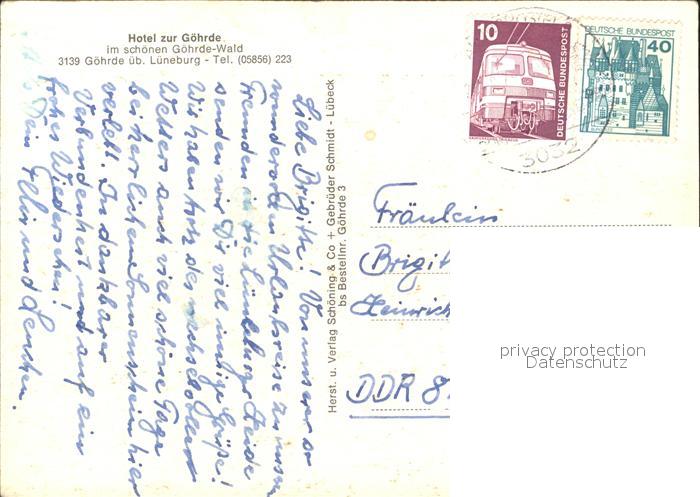 Hotel zur Göhrde
im schönen Göhrde-Wald
3139 Göhrde üb. Lüneburg - Tel. (05856) 223
10
DEUTSCHE BUNDESPOST
DEUTSCHE BUNDESPOST
40
3032
Herst. u. Verlag Schöning & Co + Gebrüder Schmidt - Lübeck
bs Bestellnr. Göhrde 3
Liebe Brigitte! Von unserer so
wundervollen Urlaubsreise zu unsern
Freunden in die Lüneburger Heide
senden wir Dir viel innige Grüße!
Wir haben trotz des wechselvollen
Wetters auch viel schöne Tage
bei herrlichem Sonnenschein hier
verlebt. In dankbarer
Verbundenheit und auf ein
frohes Wiedersehen!
Dein und Lenchen.
Fräulein
Brigit
Heinrich
DDR 8
privacy protection
Datenschutz